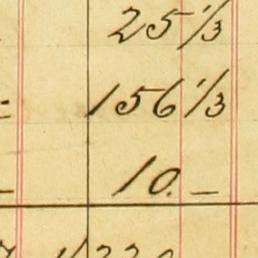 25 1/3
156 1/3
10. –